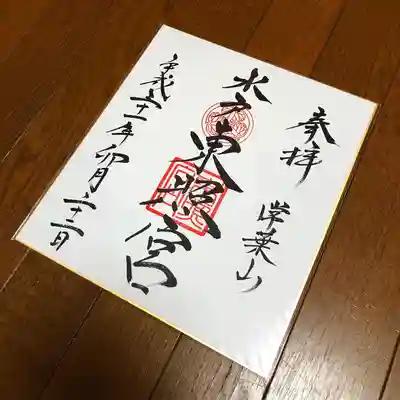 奉拝
常葉山
水戸東照宮
平成二十一年卯月二十二日